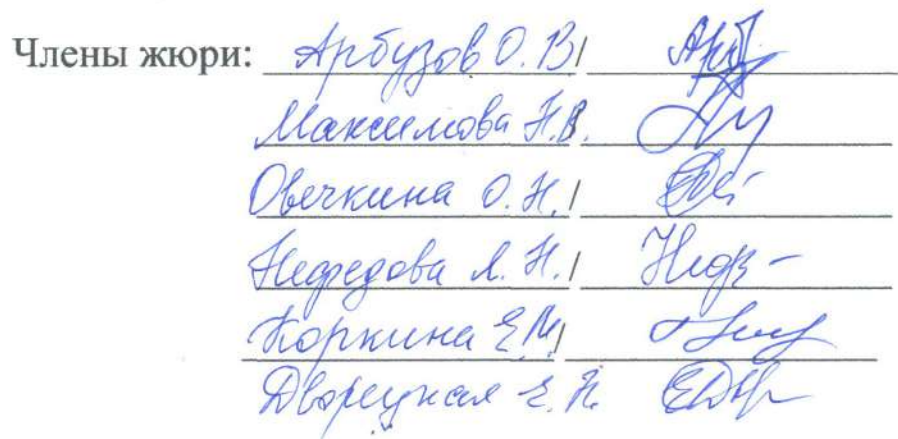 Члены жюри: Арбузов О. В /
Максимова Н.В.
Овечкина О. Н. /
Нефедова А. Н. /
Коркина Е.М. /
Дворецкая Е. Н.